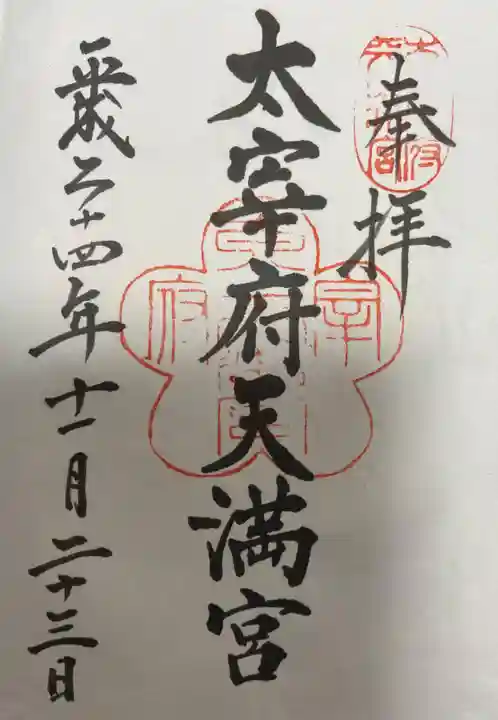 奉拝
太宰府天満宮
平成二十四年十一月二十三日